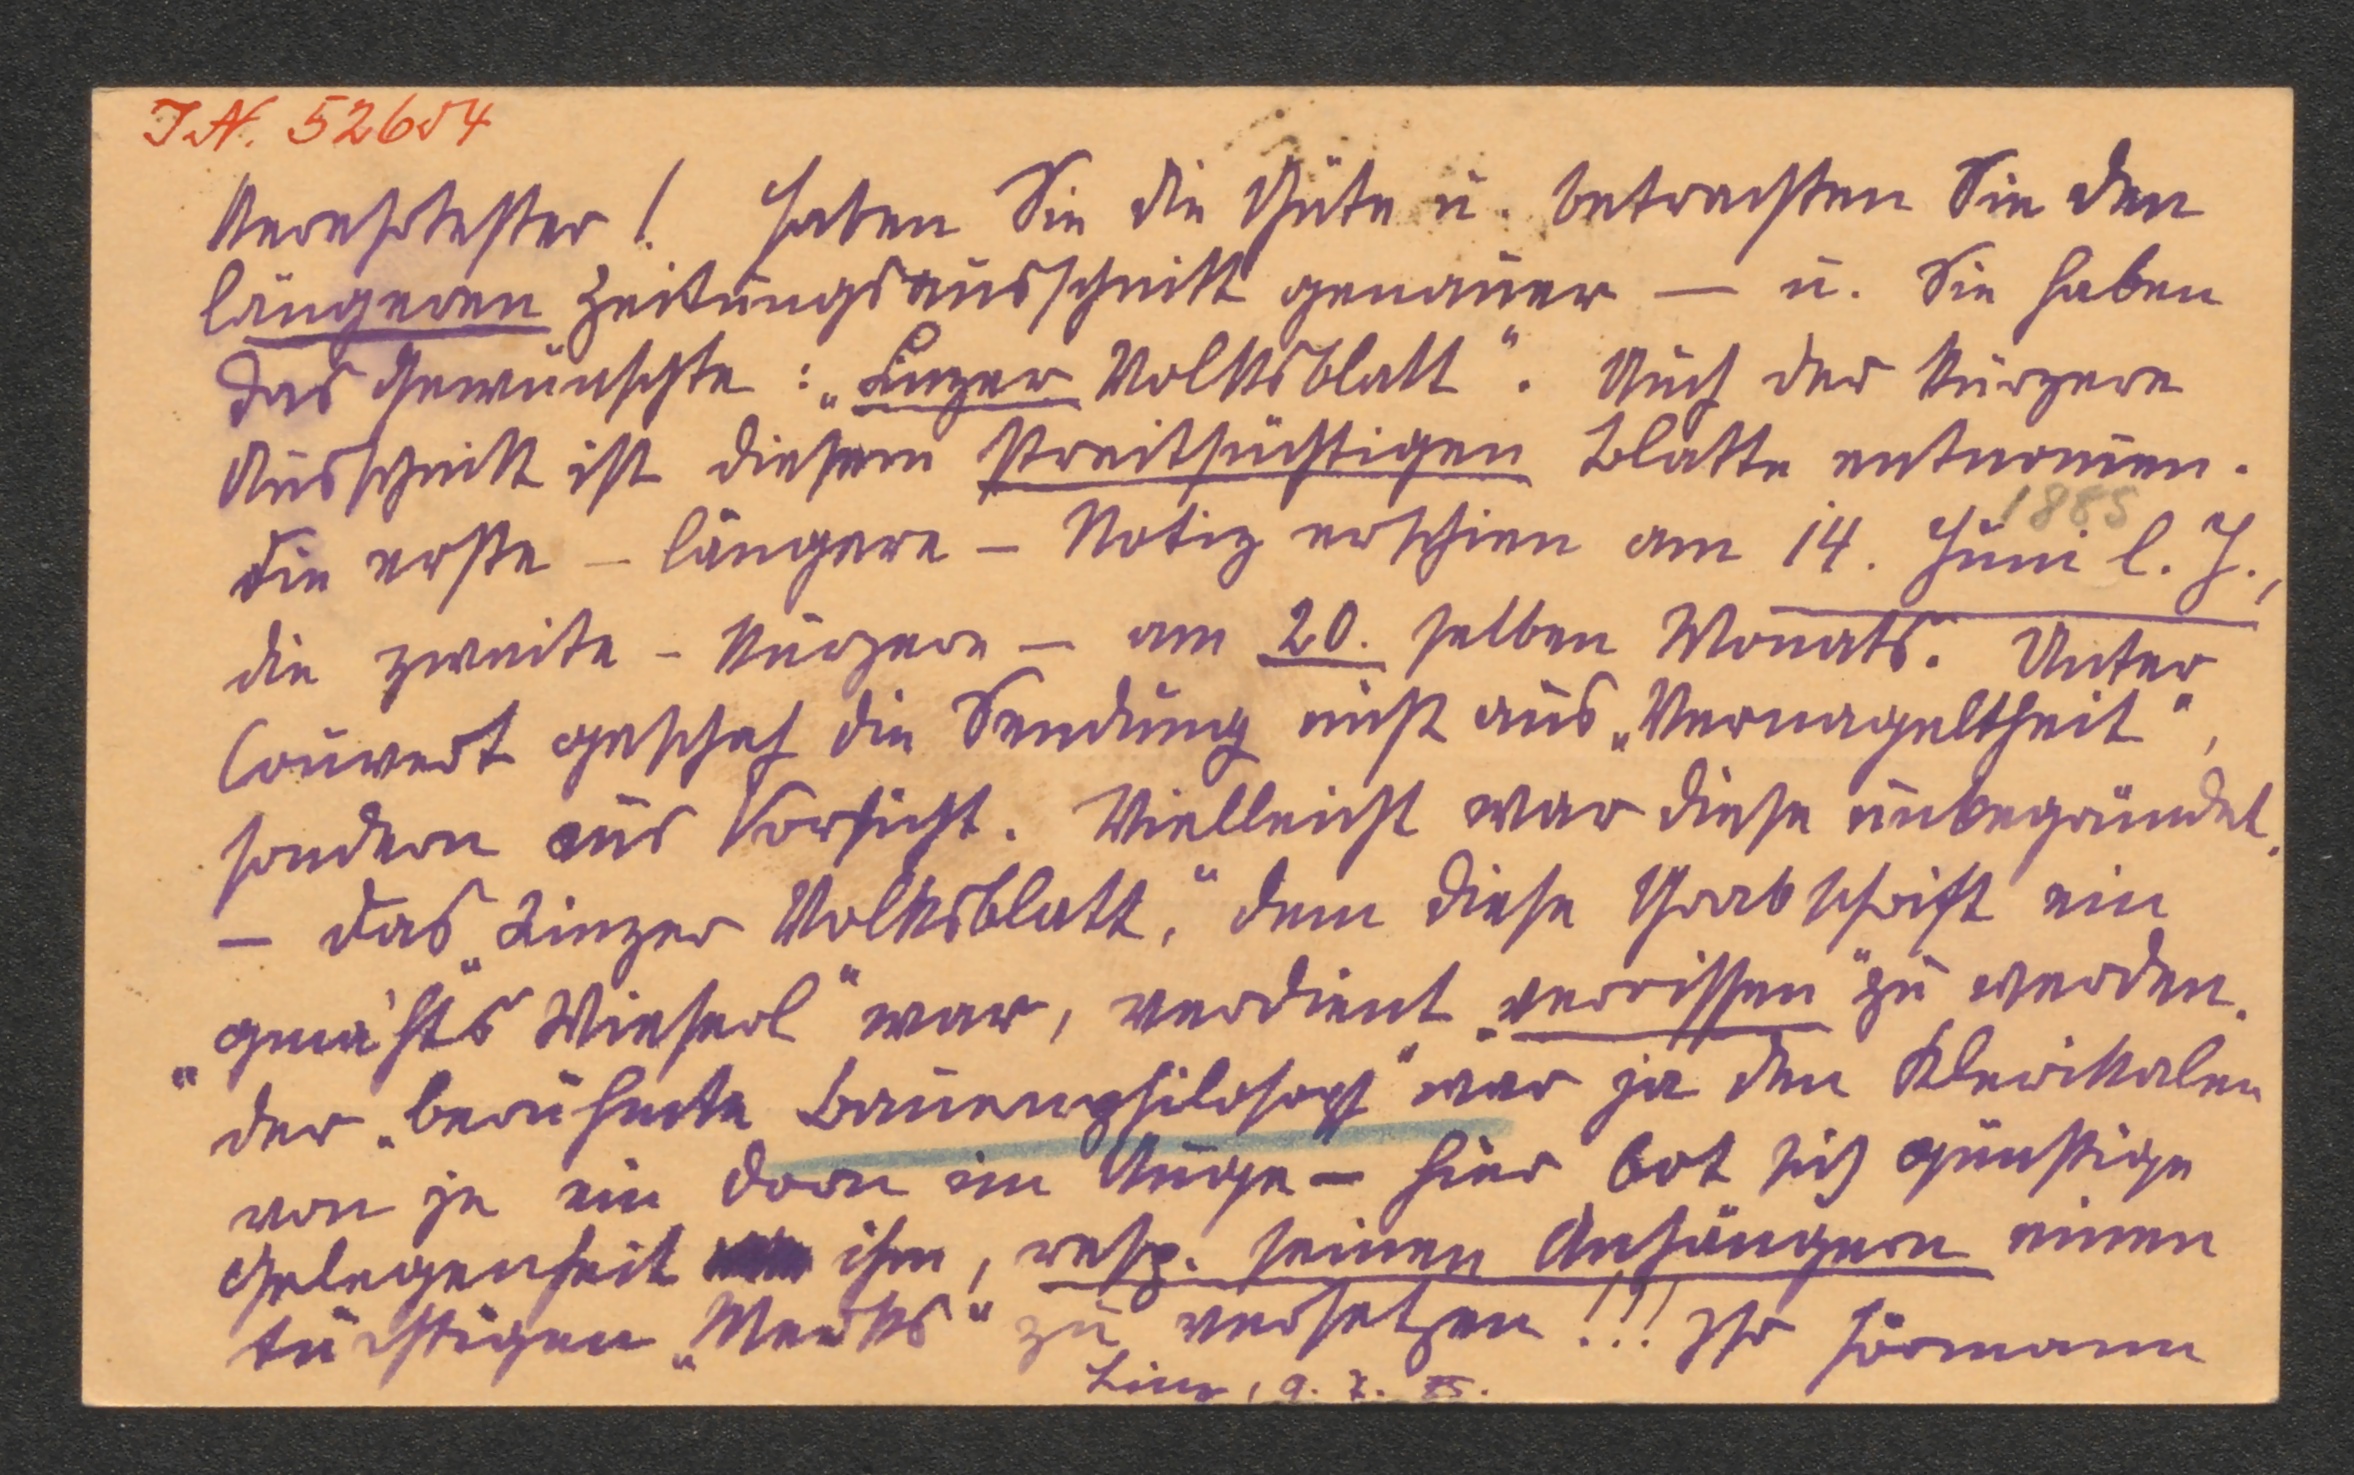 I.N. 52654
Verehrtester! Haben Sie die Güte u. betrachten Sie den
längeren Zeitungsausschnitt genauer — u. Sie haben
das Gewünschte: „Linzer Volksblatt". Auch der kürzere
Ausschnitt ist diesem streitsüchtigen Blatte entnom̅en.
1885
Die erste – längere – Notiz erschien am 14. Juni l. J.,
die zweite – kürzere – am 20. selben Monats. Unter
Couvert geschah die Sendung nicht aus „Vernageltheit",
sondern aus Vorsicht. Vielleicht war diese unbegründet.
— Das „Linzer Volksblatt," dem diese Grabschrift ein
„gmäht's Wieserl" war, verdient „verrissen" zu werden.
Der „berühmte Bauernphilosoph" war ja den Klerikalen
von je ein Dorn im Auge – hier bot sich günstige
Gelegenheit ihm, resp. seinen Anhängern einen
tüchtigen „Merks" zu versetzen!!! Ihr Hörmann
Linz, 9. 7. 85.